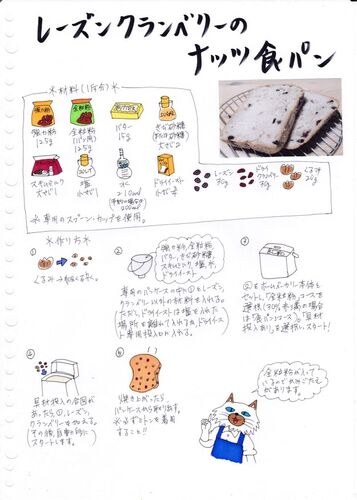 レーズンクランベリーの
ナッツ食パン
※材料(1斤分)※
強力粉
125g
全粒粉
(パン用)
125g
バター
15g
きび砂糖
大さじ2
スキムミルク
大さじ1
塩
小さじ1
水
210ml
ドライイースト
小さじ
レーズン
30g
ドライ
クランベリー
30g
くるみ
20g
※専用のスプーン、カップを使用。
※作り方※
①
くるみ→
②
強力粉、全粒粉、
バター、きび砂糖、
スキムミルク、塩、水、
ドライイースト
専用のパンケースの中に①とレーズン、
クランベリー以外の材料を入れる。
ただし、ドライイーストは塩を入れた
場所と離して入れるか、ドライイースト
専用投入口に入れる。
③
②をホームベーカリー本体に
セットし、「全粒粉」コースを
選択
は「食パンコース」。「具材
投入あり」を選択し、スタート!
④
具材投入の合図が
あったら、①、レーズン、
クランベリーを
スタートします。
焼き上がったら
パンケースから取り出す。
※必ずミトンを着用
すること!!
全粒粉が入って
いるので
があります。